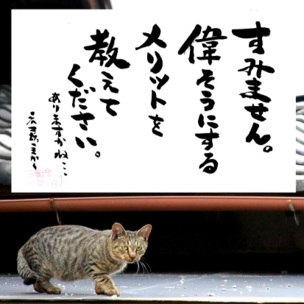 すみません。
偉そうにする
メリットを
教えて
ください。
ありますかね…